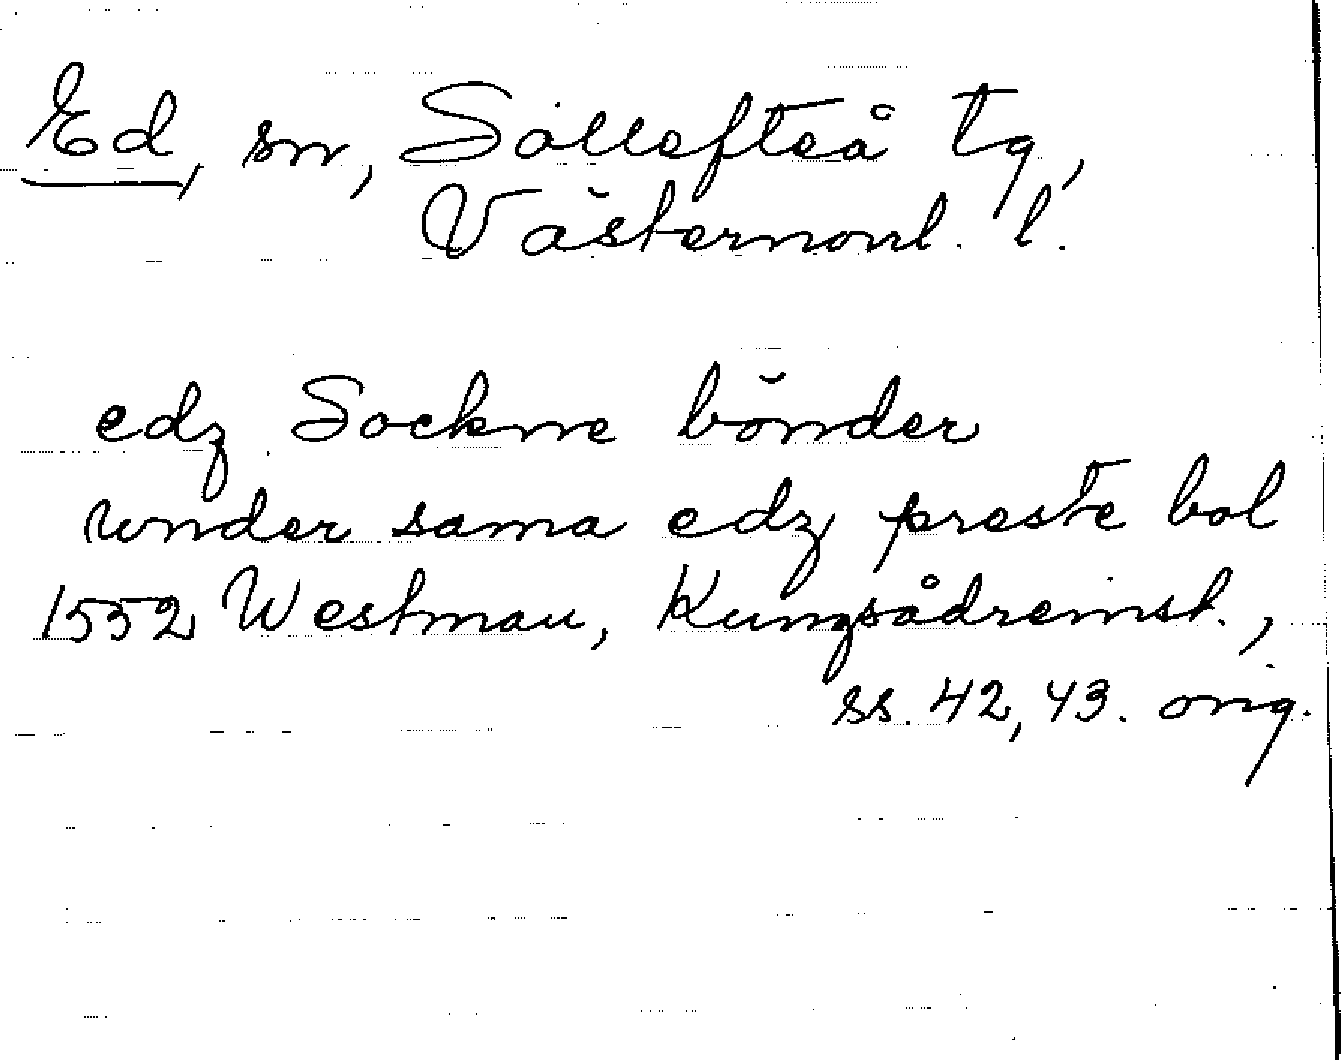 Ed, sn, Sollefteå tg,
Västernorrl. l.
edz Sockne bönder
wnder sama edz preste bol
1552 Westman, Kungsådreinst.,
ss. 42, 43. orig.